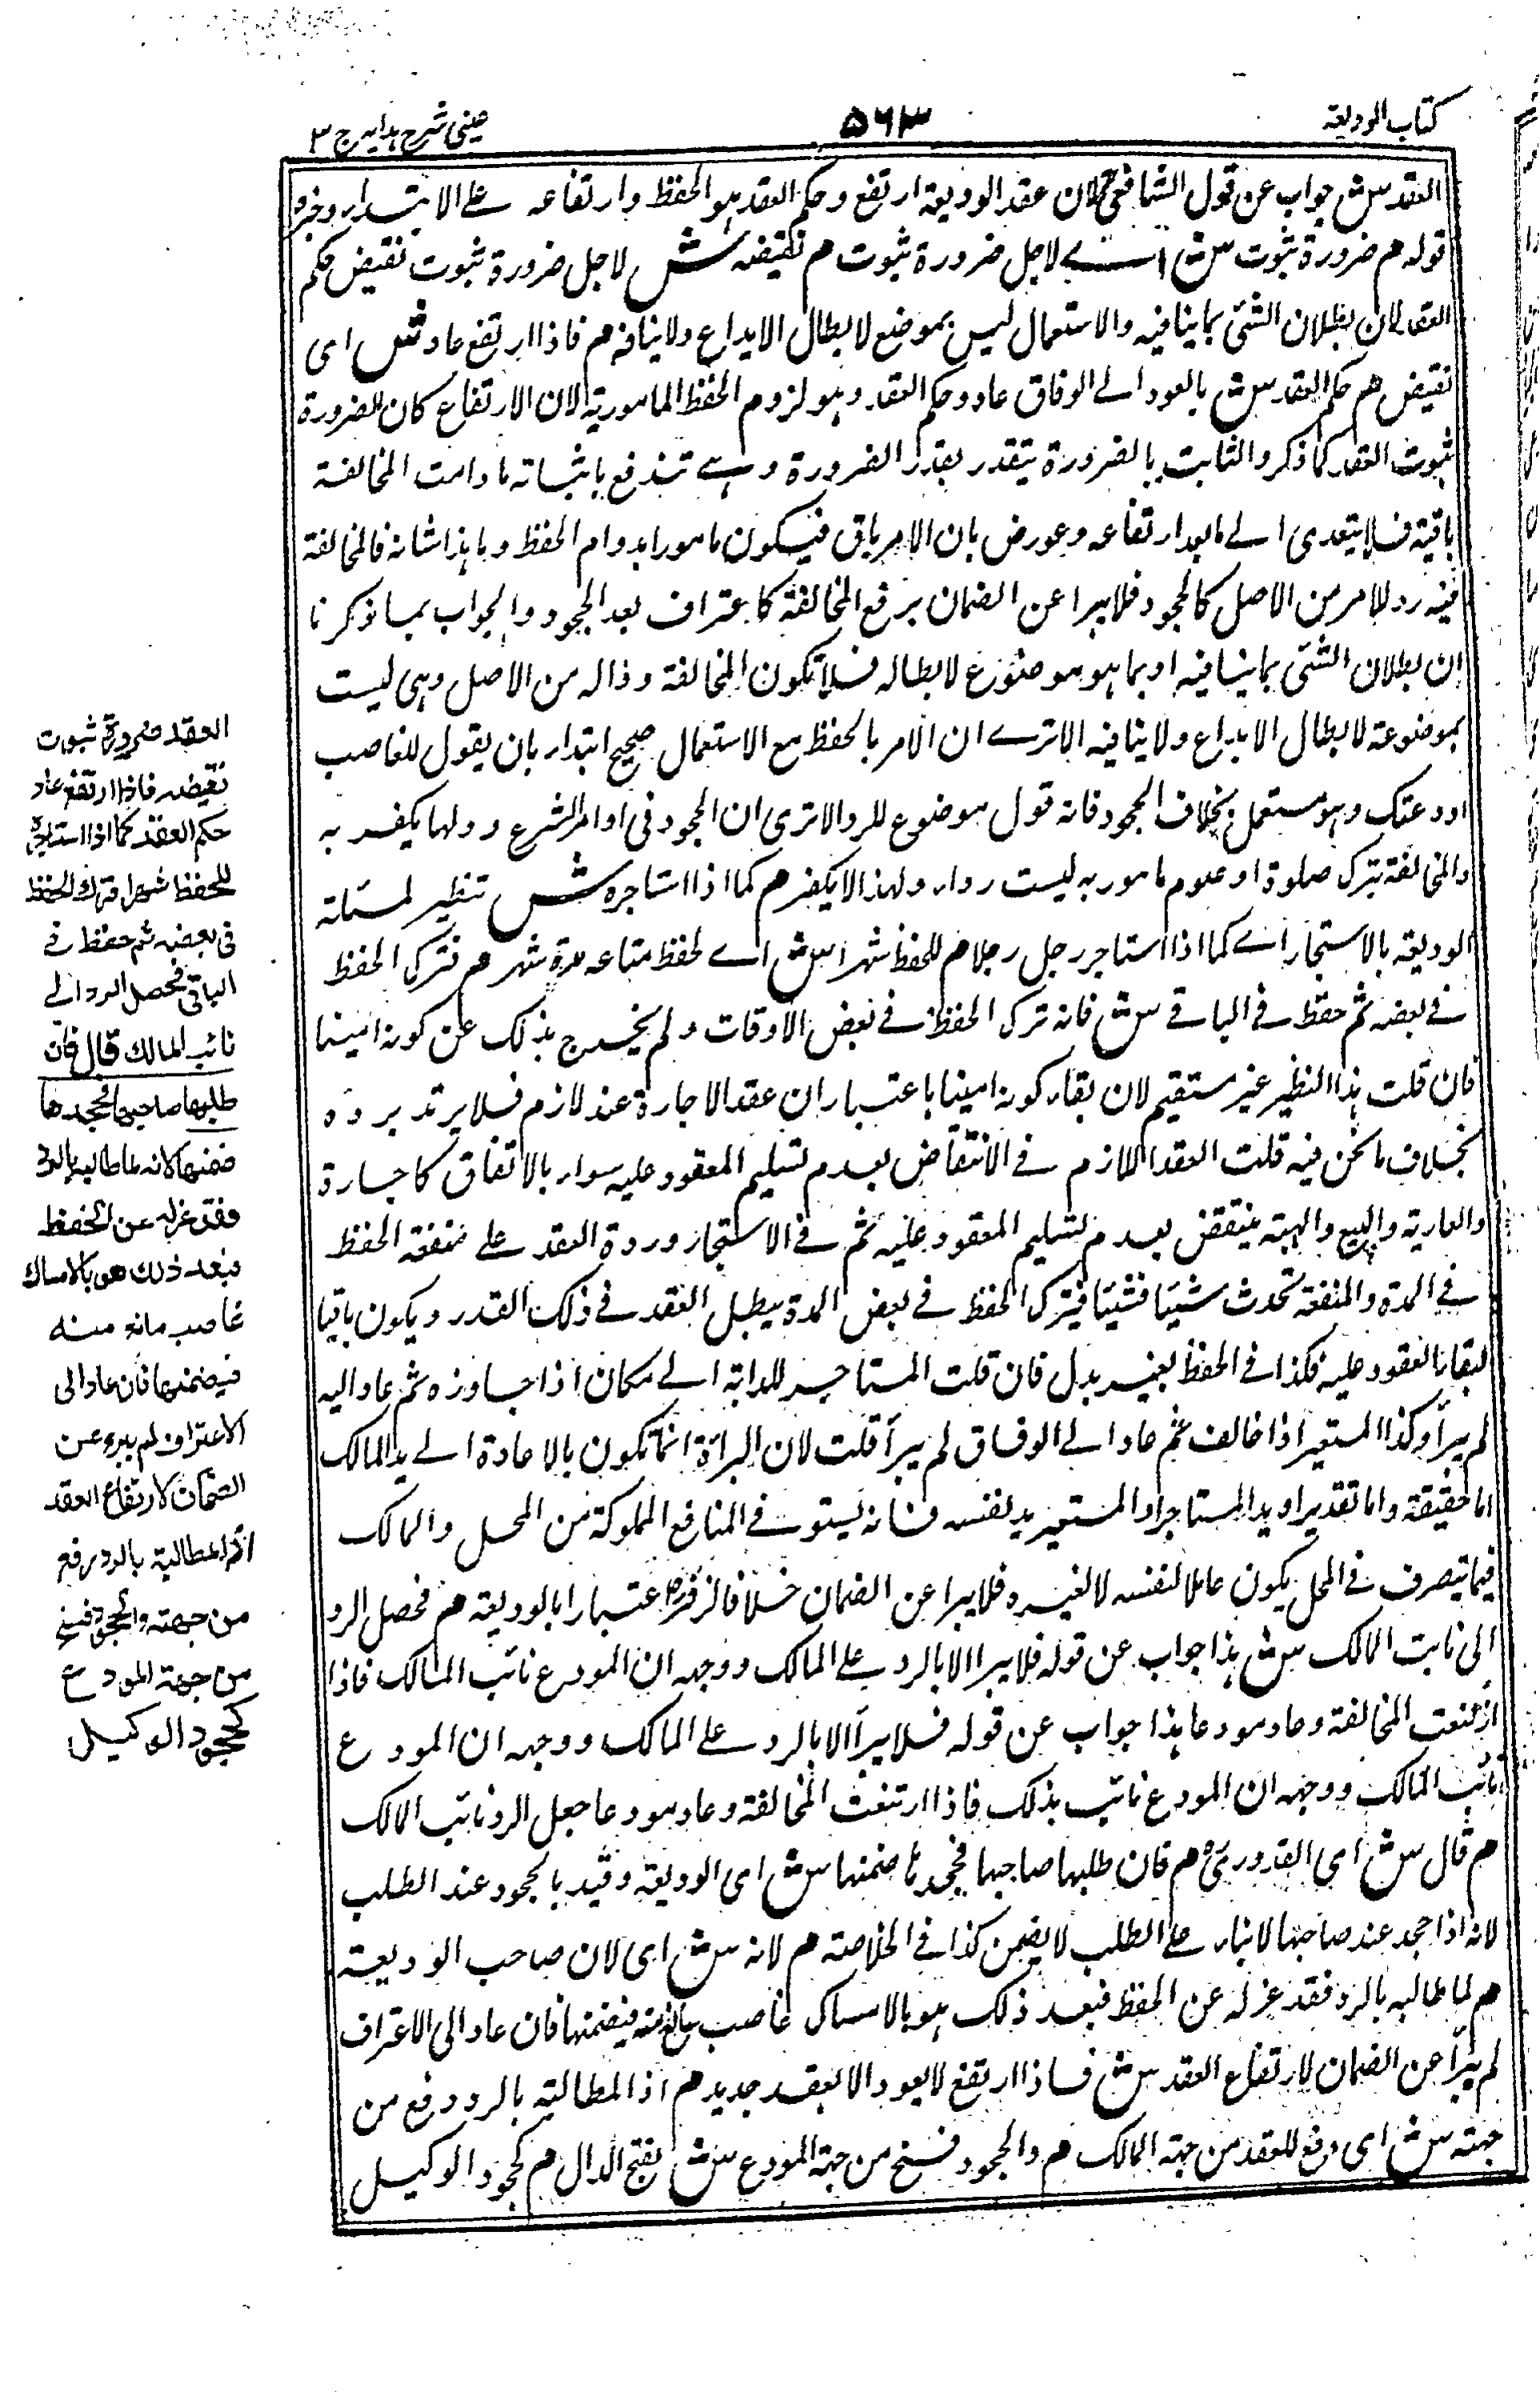 كتاب الوديعة
۵۶۳
عينى شرح هدايه ج ۳
العقد ش جواب عن قول الشافعي لان عقد الوديعة ارتفع وحكم العقد هو الحفظ وارتفاعه على الابتداء وخبره
قوله م ضرورة ثبوت ش اے لاجل ضرورة ثبوت م نقيضه ش لاجل ضرورة ثبوت نقيض حكم
العقد لان بطلان الشئ بما ينافيه والاستعمال ليس بموضع لابطال الايداع ولا ينافيه م فاذا ارتفع عاد ش اى
نقيض م حكم العقد ش بالعود الے الوفاق عاد وحكم العقد وهو لزوم الحفظ المامور به لان الارتفاع كان لضرورة
ثبوت العقد كما ذكر والثابت بالضرورة يتقدر بقدر الضرورة وہے تندفع باثباته ما دامت المخالفة
باقية فلا يتعدى الے ما بعد ارتفاعه وعورض بان الامر باق فيكون مامورا بدوام الحفظ وما هذا شانه فالمخالفة
فيه رد للامر من الاصل كالجحود فلا يبرا عن الضمان برفع المخالفة كاعتراف بعد الجحود والجواب بما ذكرنا
ان بطلان الشئ بما ينافيه او بما هو موضوع لابطاله فلا تكون المخالفة وذاله من الاصل وهى ليست
بموضوعة لابطال الايداع ولا ينافيه الاترے ان الامر بالحفظ مع الاستعمال صحيح ابتداء بان يقول للغاصب
اودعتك وهو مستعمل بخلاف الجحود فانه قول موضوع للرد الاترى ان الجحود فى اوامر الشرع رد لها يكفر به
والمخالفة بترك صلوة او صوم مامور به ليست رداء ولهذا لا يكفر م كما اذا استاجره ش تنظير لمسئلة
الوديعة بالاستيجار اے كما اذا استاجر رجل رجلا م للحفظ شهرا ش اے لحفظ متاعه مدة شهر م فترك الحفظ
فے بعضه ثم حفظ فے الباقے ش فانه ترك الحفظ فے بعض الاوقات ولم يخرج بذلك عن كونه امينا
فان قلت هذا النظير غير مستقيم لان بقاء كونه امينا باعتبار ان عقد الاجارة عند لازم فلا يرتد برده
بخلاف ما نحن فيه قلت العقد اللازم فے الانتقاض بعدم تسليم المعقود عليه سواء بالاتفاق كاجارة
والعارية والبيع والهبة ينتقض بعدم تسليم المعقود عليه ثم فے الاستيجار وردة العقد على منفعة الحفظ
فے المدة والمنفعة تحدث شيئا فشيئا فيترك الحفظ فے بعض المدة يبطل العقد فے ذلك القدر ويكون باقيا
لبقاء المعقود عليه فكذا فے الحفظ بغير بدل فان قلت المستاجر للدابة الے مكان اذا جاوزه ثم عاد اليه
لم يبرأ وكذا المستعير اذا خالف ثم عاد الے الوفاق لم يبرأ قلت لان البراءة انما تكون بالاعادة الے يد المالك
اما حقيقة واما تقديرا ويد المستاجر او المستعير يد لنفسه فانه يستوفے المنافع المملوكة من المحل والمالك
فيما يتصرف فے المحل يكون عاملا لنفسه لا لغيره فلا يبرا عن الضمان خلافا لزفر اعتبارا بالوديعة م فحصل الرد
الى نايب المالك ش هذا جواب عن قوله فلا يبرا الا بالرد على المالك ووجهه ان المودع نائب المالك فاذا
ارتفعت المخالفة وعاد مودعا هذا جواب عن قوله فلا يبرأ الا بالرد على المالك ووجهه ان المودع
نائب المالك ووجهه ان المودع نائب بذلك فاذا ارتفعت المخالفة وعاد مودعا جعل الرد نائب المالك
م قال ش اى القدورىؒ م فان طلبها صاحبها فجحدها ضمنها ش اى الوديعة وقيد بالجحود عند الطلب
لانه اذا جحد عند صاحبها لا بناء على الطلب لا يضمن كذا فے الخلاصة م لانه ش اى لان صاحب الوديعة
م لما طالبه بالرد فقد عزله عن الحفظ فبعد ذلك هو بالامساك غاصب مانع منه فيضمنها فان عاد الى الاعتراف
لم يبرأ عن الضمان لارتفاع العقد ش فاذا ارتفع لا يعود الا بعقد جديد م اذ المطالبة بالرد رفع من
جهته ش اى رفع للعقد من جهة المالك م والجحود فسخ من جهة المودع ش بفتح الدال م كجحود الوكيل
العقد ضرورة ثبوت
نقيضه فاذا ارتفع عاد
حكم العقد كما اذا استاجره
للحفظ شهرا فترك الحفظ
فى بعضه ثم حفظ فے
الباقى فحصل الرد الے
نائب المالك قال فان
طلبها صاحبها فجحدها
ضمنها لانه لما طالبه بالرد
فقد عزله عن الحفظ
فبعد ذلك هو بالامساك
غاصب مانع منه
فيضمنها فان عاد الى
الاعتراف لم يبرء عن
الضمان لارتفاع العقد
اذ المطالبة بالرد رفع
من جهته والجحود فسخ
من جهة المودع
كجحود الوكيل